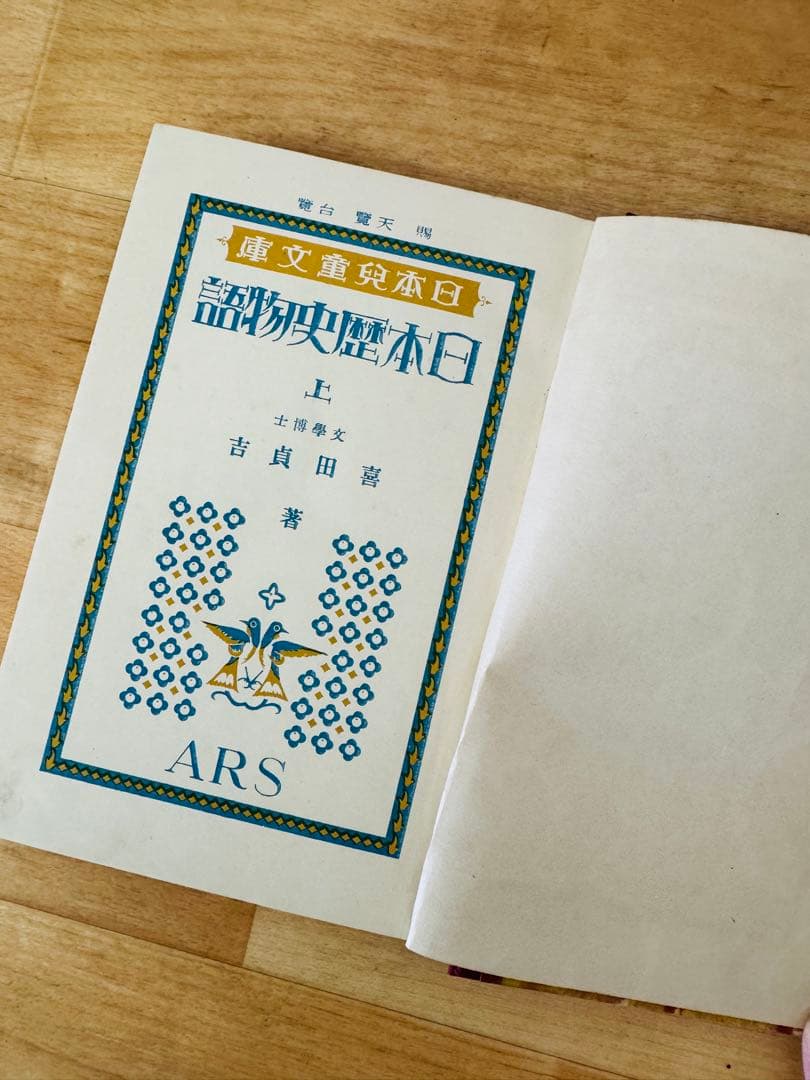 賜 天覽 台覽
日本兒童文庫
日本歷史物語
上
文學博士
喜田貞吉
著
ARS